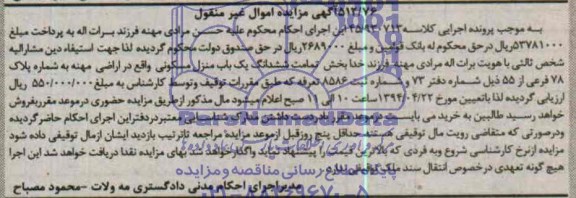 آگهی مزایده اموال غیر منقول
به موجب پرونده اجرایی کلاسه این اجرای احکام محکوم علیه حسن مرادی مهنه فرزند برات اله به پرداخت مبلغ
۵۳۷۸۱۰۰۰ ریال در حق محکوم له بانک قوامین و مبلغ ۲۶۸۹۰۰۰ ریال در حق صندوق دولت محکوم گردیده لذا جهت استیفاء دین مشارالیه
شخص ثالثی با هویت برات اله مرادی مهنه فرزند خدابخش تمامت ششدانگ یک باب منزل مسکونی واقع در اراضی مهنه به شماره پلاک
۷۸ فرعی از ۵۵ ذیل شماره دفتر ۷۳ و شماره ثبت ۸۵۸۶ تعرفه که طبق مقررات توقیف و توسط کارشناس به مبلغ ۵۵۰/۰۰۰/۰۰۰ ریال
ارزیابی گردیده لذا با تعیین مورخ ۱۳۹۴/۰۴/۲۲ ساعت ۱۰ الی ۱۱ صبح اعلام میشود مال مذکور از طریق مزایده حضوری در موعد مقرر بفروش
خواهد رسید طالبین به خرید می بایست در دفتر این اجرای احکام حاضر گردیده
و در صورتی که متقاضی رویت مال توقیفی هستند حداقل پنج روز قبل از موعد مزایده مراجعه تا ترتیب بازدید ایشان از مال توقیفی داده شود
مزایده از نرخ کارشناسی شروع و به فردی که بالاترین قیمت را پیشنهاد نماید واگذار خواهد شد بهای مزایده نقدا دریافت خواهد شد این اجرا
هیچ گونه تعهدی در خصوص انتقال سند ملک توقیفی ندارد
مدیر اجرای احکام مدنی دادگستری مه ولات - محمود مصباح
پایگاه اطلاع رسانی مناقصه و مزایده